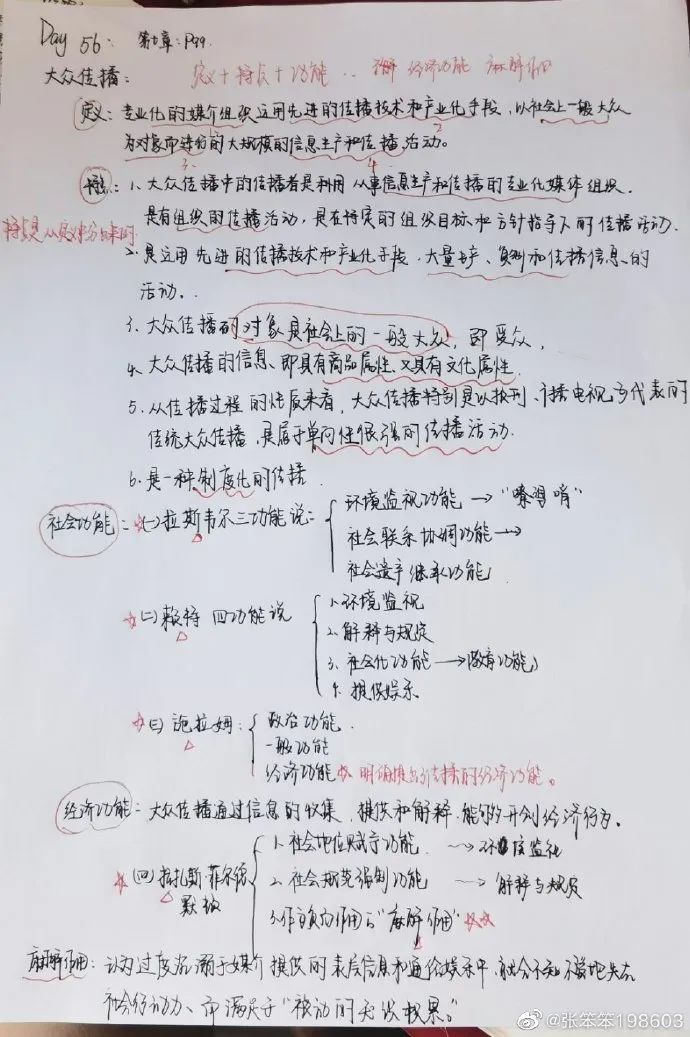 Day 56: 第七章: P99
大众传播: 定义+特点+功能 .. 经济功能 麻醉作用
定义: 专业化的媒介组织运用先进的传播技术和产业化手段, 以社会上一般大众
为对象而进行的大规模的信息生产和传播活动。
特点: 1. 大众传播中的传播者是利用 从事信息生产和传播的专业化媒体组织.
是有组织的传播活动, 是在特定的组织目标和方针指导下的传播活动.
特点是从定义中分出来的
2. 是运用先进的传播技术和产业化手段, 大量生产、复制和传播信息的
活动..
3. 大众传播的对象是社会上的一般大众, 即受众,
4. 大众传播的信息、即具有商品属性、又具有文化属性.
5. 从传播过程的性质来看, 大众传播特别是以报刊、广播电视为代表的
传统大众传播, 是属于单向性很强的传播活动.
6. 是一种制度化的传播.
社会功能: (一) 拉斯韦尔三功能说:
环境监视功能 → "瞭望哨"
社会联系协调功能 →
社会遗产继承功能
(二) 赖特四功能说
1. 环境监视
2. 解释与规定
3. 社会化功能 → (教育功能)
4. 提供娱乐
(三) 施拉姆:
政治功能.
一般功能
经济功能 明确提出了传播的经济功能。
经济功能: 大众传播通过信息的收集、提供和解释, 能够开创经济行为。
(四) 拉扎斯菲尔德
默顿
1. 社会地位赋予功能. → 环境监视
2. 社会规范强制功能 → 解释与规定
3. 作为负作用的"麻醉作用"
麻醉作用: 认为过度沉溺于媒介提供的表层信息和通俗娱乐中, 就会不知不觉地失去
社会行动力、而满足于"被动的知识积累。"
@张笨笨198603